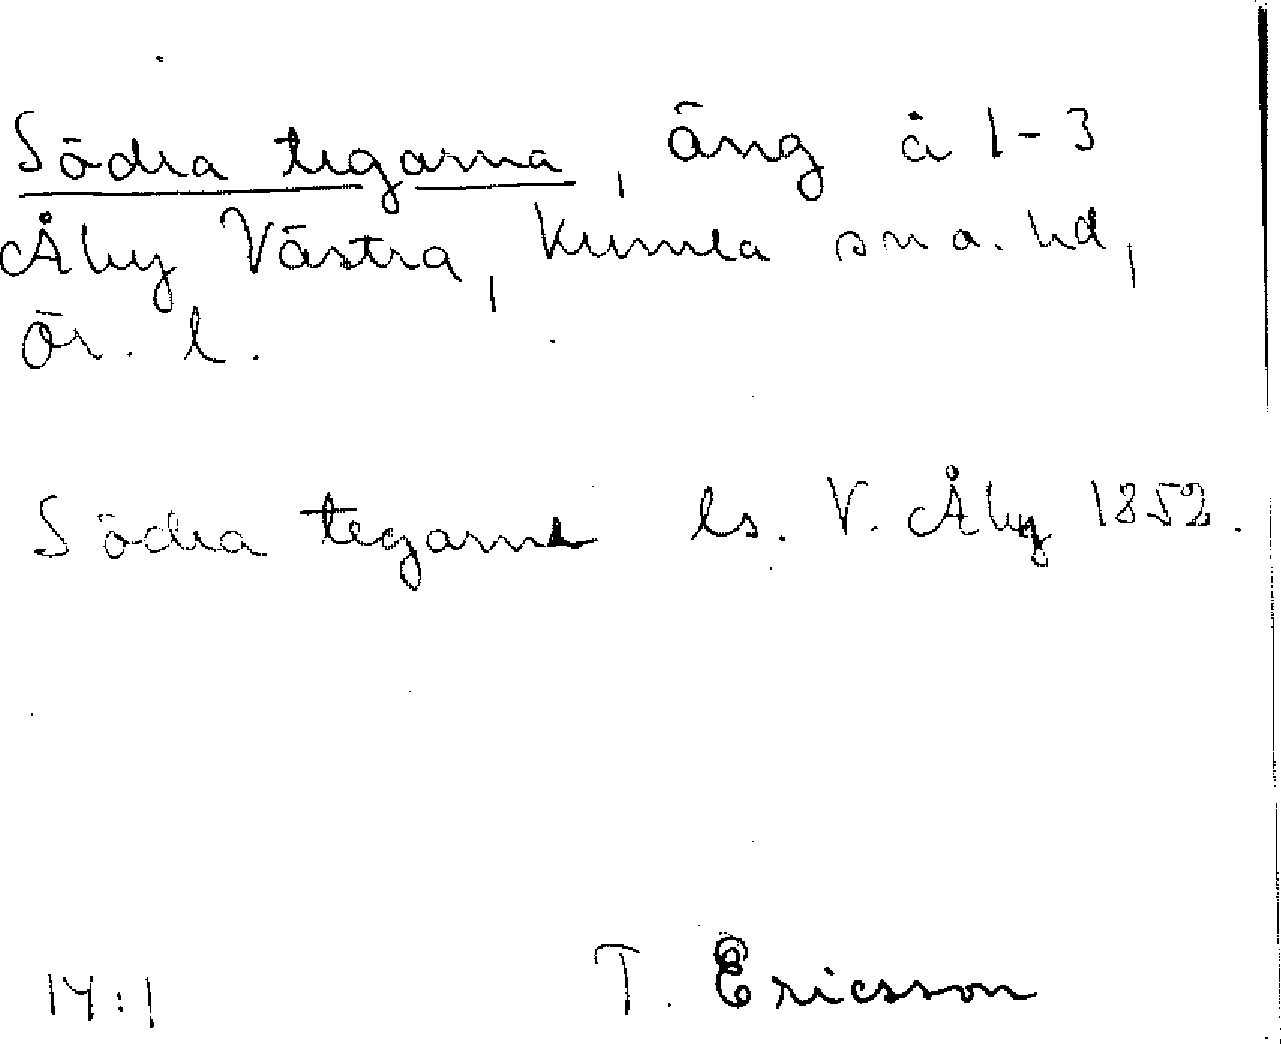 Södra tegarna, äng å 1-3
Åby Västra, Kumla sn a. hd,
Ör. l.
Södra tegarne ls. V. Åby 1852.
14:1 T. Ericsson